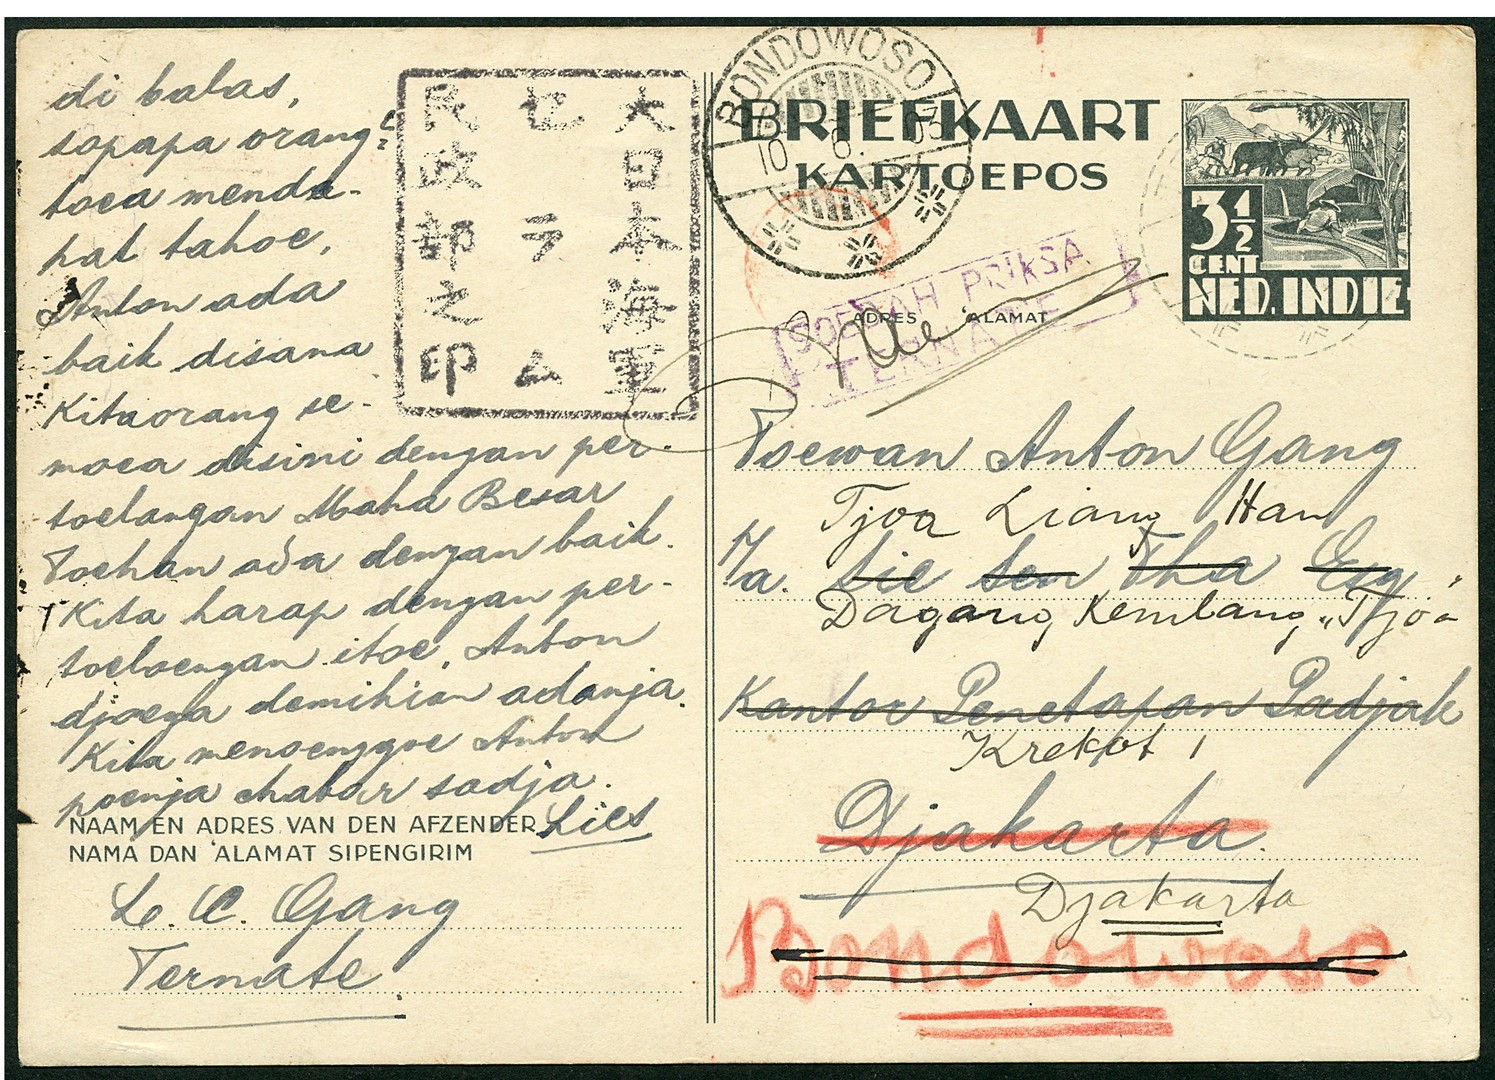 di balas,
sopapa orang²
toea menda-
pat tahoe,
Anton ada
baik disana
Kitaorang se-
moea disini dengan per-
toelangan Maha Besar
Toehan ada dengan baik.
Kita harap dengan per-
toeloengan itoe, Anton
djoega demikian adanja.
Kita menoenggoe Anton
poenja chabar sadja.
Lies
NAAM EN ADRES VAN DEN AFZENDER
NAMA DAN 'ALAMAT SIPENGIRIM
L. C. Gang
Ternate.
大日本海軍
セラム
民政部之印
BONDOWOSO
10 6
BRIEFKAART
KARTOEPOS
3½
CENT
NED. INDIE
SOEDAH PRIKSA
TERNATE
ADRES 'ALAMAT
Toewan Anton Gang
Tjoa Liang Han
p/a. Lie Sen Tha Esq.
Dagang Kembang „Tjoa
Kantor Penetapan Padjak
Krekot 1
Djakarta.
Djakarta
Bondowoso.